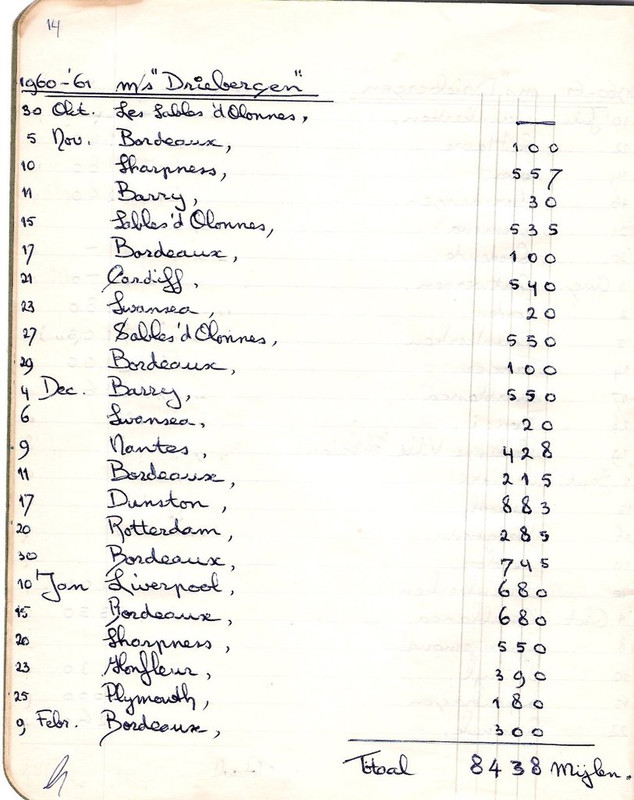 14
1960-'61 m/s "Driebergen"
30 Okt. Les Sables 'd Olonnes, —
5 Nov. Bordeaux, 100
10 Sharpness, 557
11 Barry, 30
15 Sables 'd Olonnes, 535
17 Bordeaux, 100
21 Cardiff, 540
23 Swansea, 20
27 Sables 'd Olonnes, 550
29 Bordeaux, 100
4 Dec. Barry, 550
6 Swansea, 20
9 Nantes, 428
11 Bordeaux, 215
17 Dunston, 883
20 Rotterdam, 285
30 Bordeaux, 745
10 Jan Liverpool, 680
15 Bordeaux, 680
20 Sharpness, 550
23 Honfleur, 390
25 Plymouth, 180
9 Febr. Bordeaux, 300
Totaal 8438 Mijlen.